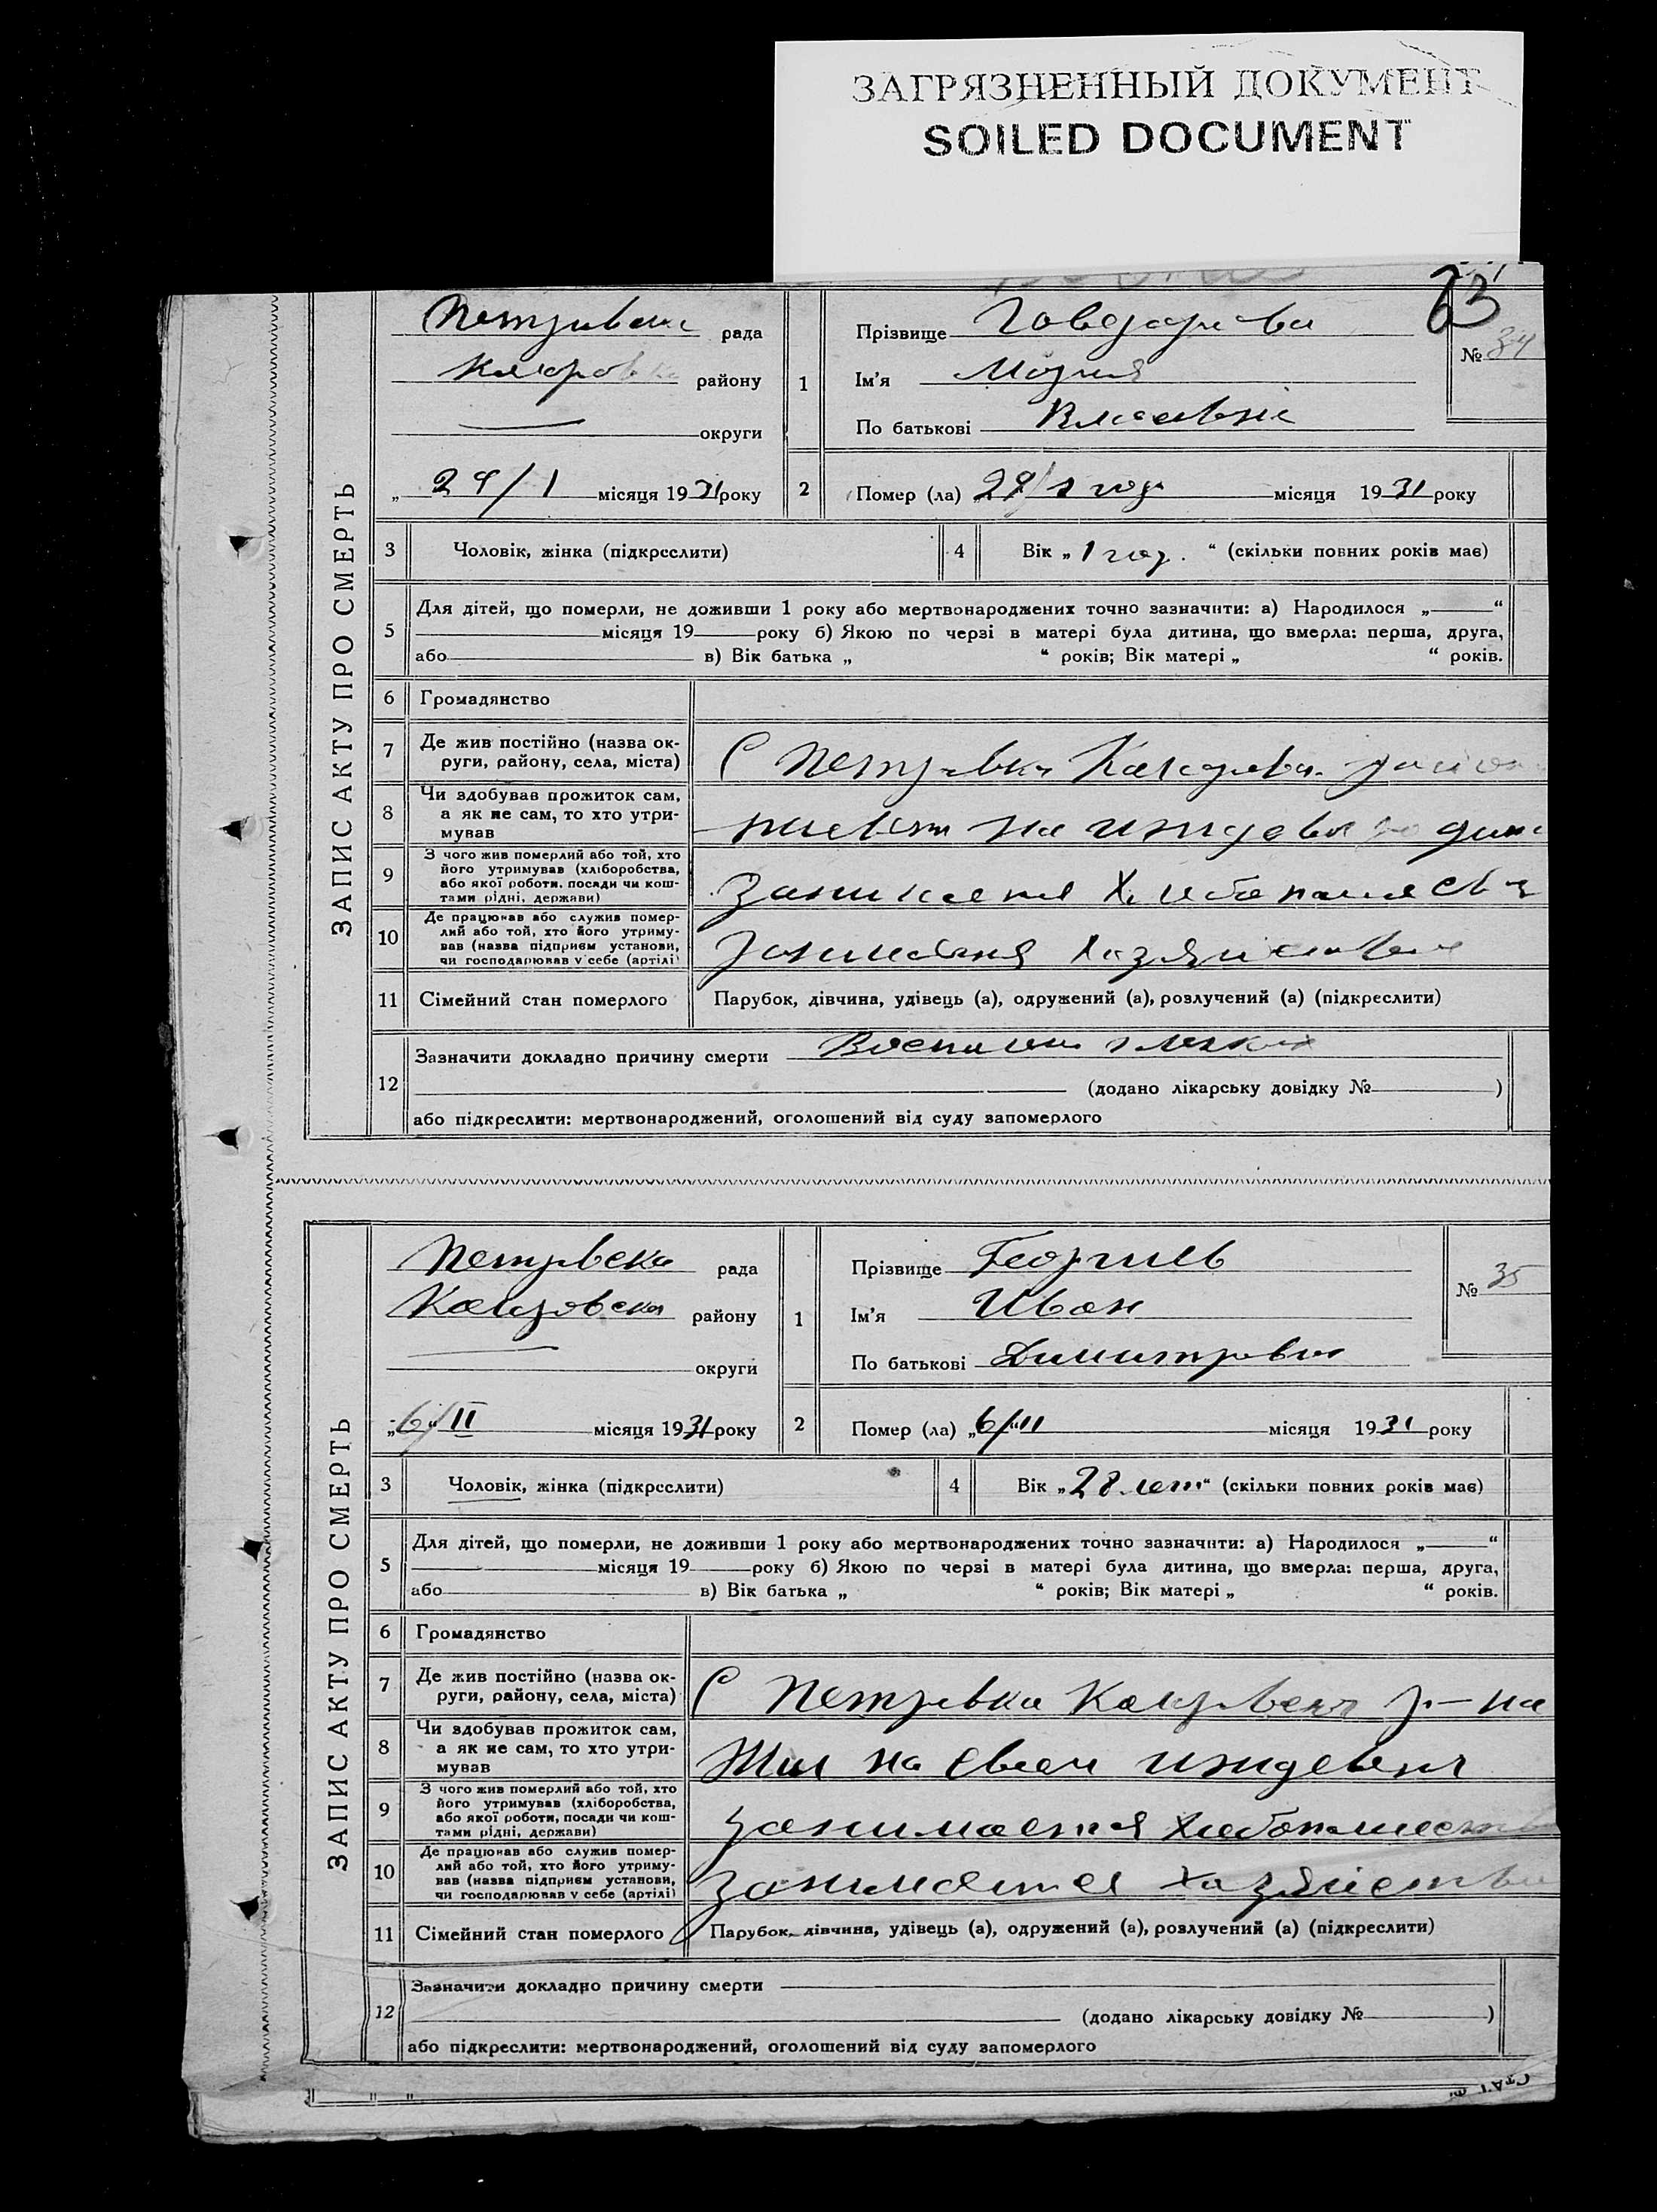 ЗАГРЯЗНЕННЫЙ ДОКУМЕНТ
SOILED DOCUMENT
63
ЗАПИС АКТУ ПРО СМЕРТЬ
рада
району
округи
місяця 1931 року
1
Прізвище
Ім'я Мария
По батькові
№ 34
2 Помер (ла) місяця 1931 року
3 Чоловік, жінка (підкреслити)
4 Вік „1 год.“ (скільки повних років має)
5 Для дітей, що померли, не доживши 1 року або мертвонароджених точно зазначити: а) Народилося „ “
місяця 19 року б) Якою по черзі в матері була дитина, що вмерла: перша, друга,
або в) Вік батька „ “ років; Вік матері „ “ років.
6 Громадянство
7 Де жив постійно (назва ок-
руги, району, села, міста)
С Петровка
8 Чи здобував прожиток сам,
а як не сам, то хто утри-
мував
9 З чого жив померлий або той, хто
його утримував (хліборобства,
або якої роботи, посади чи кош-
тами рідні, держави)
10 Де працював або служив помер-
лий або той, хто його утриму-
вав (назва підприєм установи,
чи господарював у себе (артілі)
11 Сімейний стан померлого Парубок, дівчина, удівець (а), одружений (а), розлучений (а) (підкреслити)
12 Зазначити докладно причину смерти
(додано лікарську довідку № )
або підкреслити: мертвонароджений, оголошений від суду запомерлого
ЗАПИС АКТУ ПРО СМЕРТЬ
рада
району
округи
„6/II місяця 1931 року
1
Прізвище Георгиев
Ім'я Иван
По батькові
№ 35
2 Помер (ла) „6/II місяця 1931 року
3 Чоловік, жінка (підкреслити)
4 Вік „28 лет“ (скільки повних років має)
5 Для дітей, що померли, не доживши 1 року або мертвонароджених точно зазначити: а) Народилося „ “
місяця 19 року б) Якою по черзі в матері була дитина, що вмерла: перша, друга,
або в) Вік батька „ “ років; Вік матері „ “ років.
6 Громадянство
7 Де жив постійно (назва ок-
руги, району, села, міста)
С Петровка р-на
8 Чи здобував прожиток сам,
а як не сам, то хто утри-
мував
Жил на своем
9 З чого жив померлий або той, хто
його утримував (хліборобства,
або якої роботи, посади чи кош-
тами рідні, держави)
занимается
10 Де працював або служив помер-
лий або той, хто його утриму-
вав (назва підприєм установи,
чи господарював у себе (артілі)
занимается
11 Сімейний стан померлого Парубок, дівчина, удівець (а), одружений (а), розлучений (а) (підкреслити)
12 Зазначити докладно причину смерти
(додано лікарську довідку № )
або підкреслити: мертвонароджений, оголошений від суду запомерлого